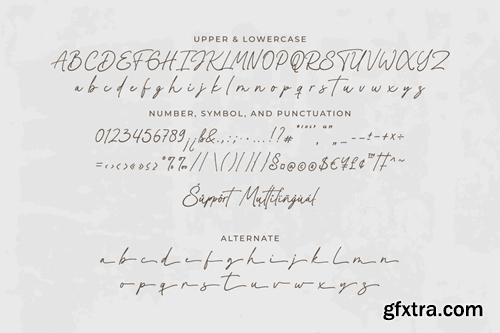 UPPER & LOWERCASE
ABCDEFGHIJKLMNOPQRSTUVWXYZ
a b c d e f g h i j k l m n o p q r s t u v w x y z
NUMBER, SYMBOL, AND PUNCTUATION
0123456789
Support Multilingual
ALTERNATE
a b c d e f g h i j k l m n
o p q r s t u v w x y z
gfxtra.com